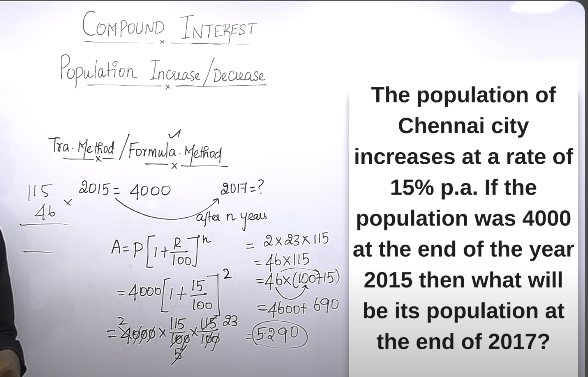 COMPOUND INTEREST
Population Increase/Decrease
Tra. Method / Formula Method
115
46 ×
2015 = 4000 2017 = ?
after n years
A = P[1 + R/100]^n
= 4000[1 + 15/100]^2
= 4000 × 115/100 × 115/100
2 5 23
= 2 × 23 × 115
= 46 × 115
= 46 × (100+15)
= 4600 + 690
= 5290
The population of
Chennai city
increases at a rate of
15% p.a. If the
population was 4000
at the end of the year
2015 then what will
be its population at
the end of 2017?